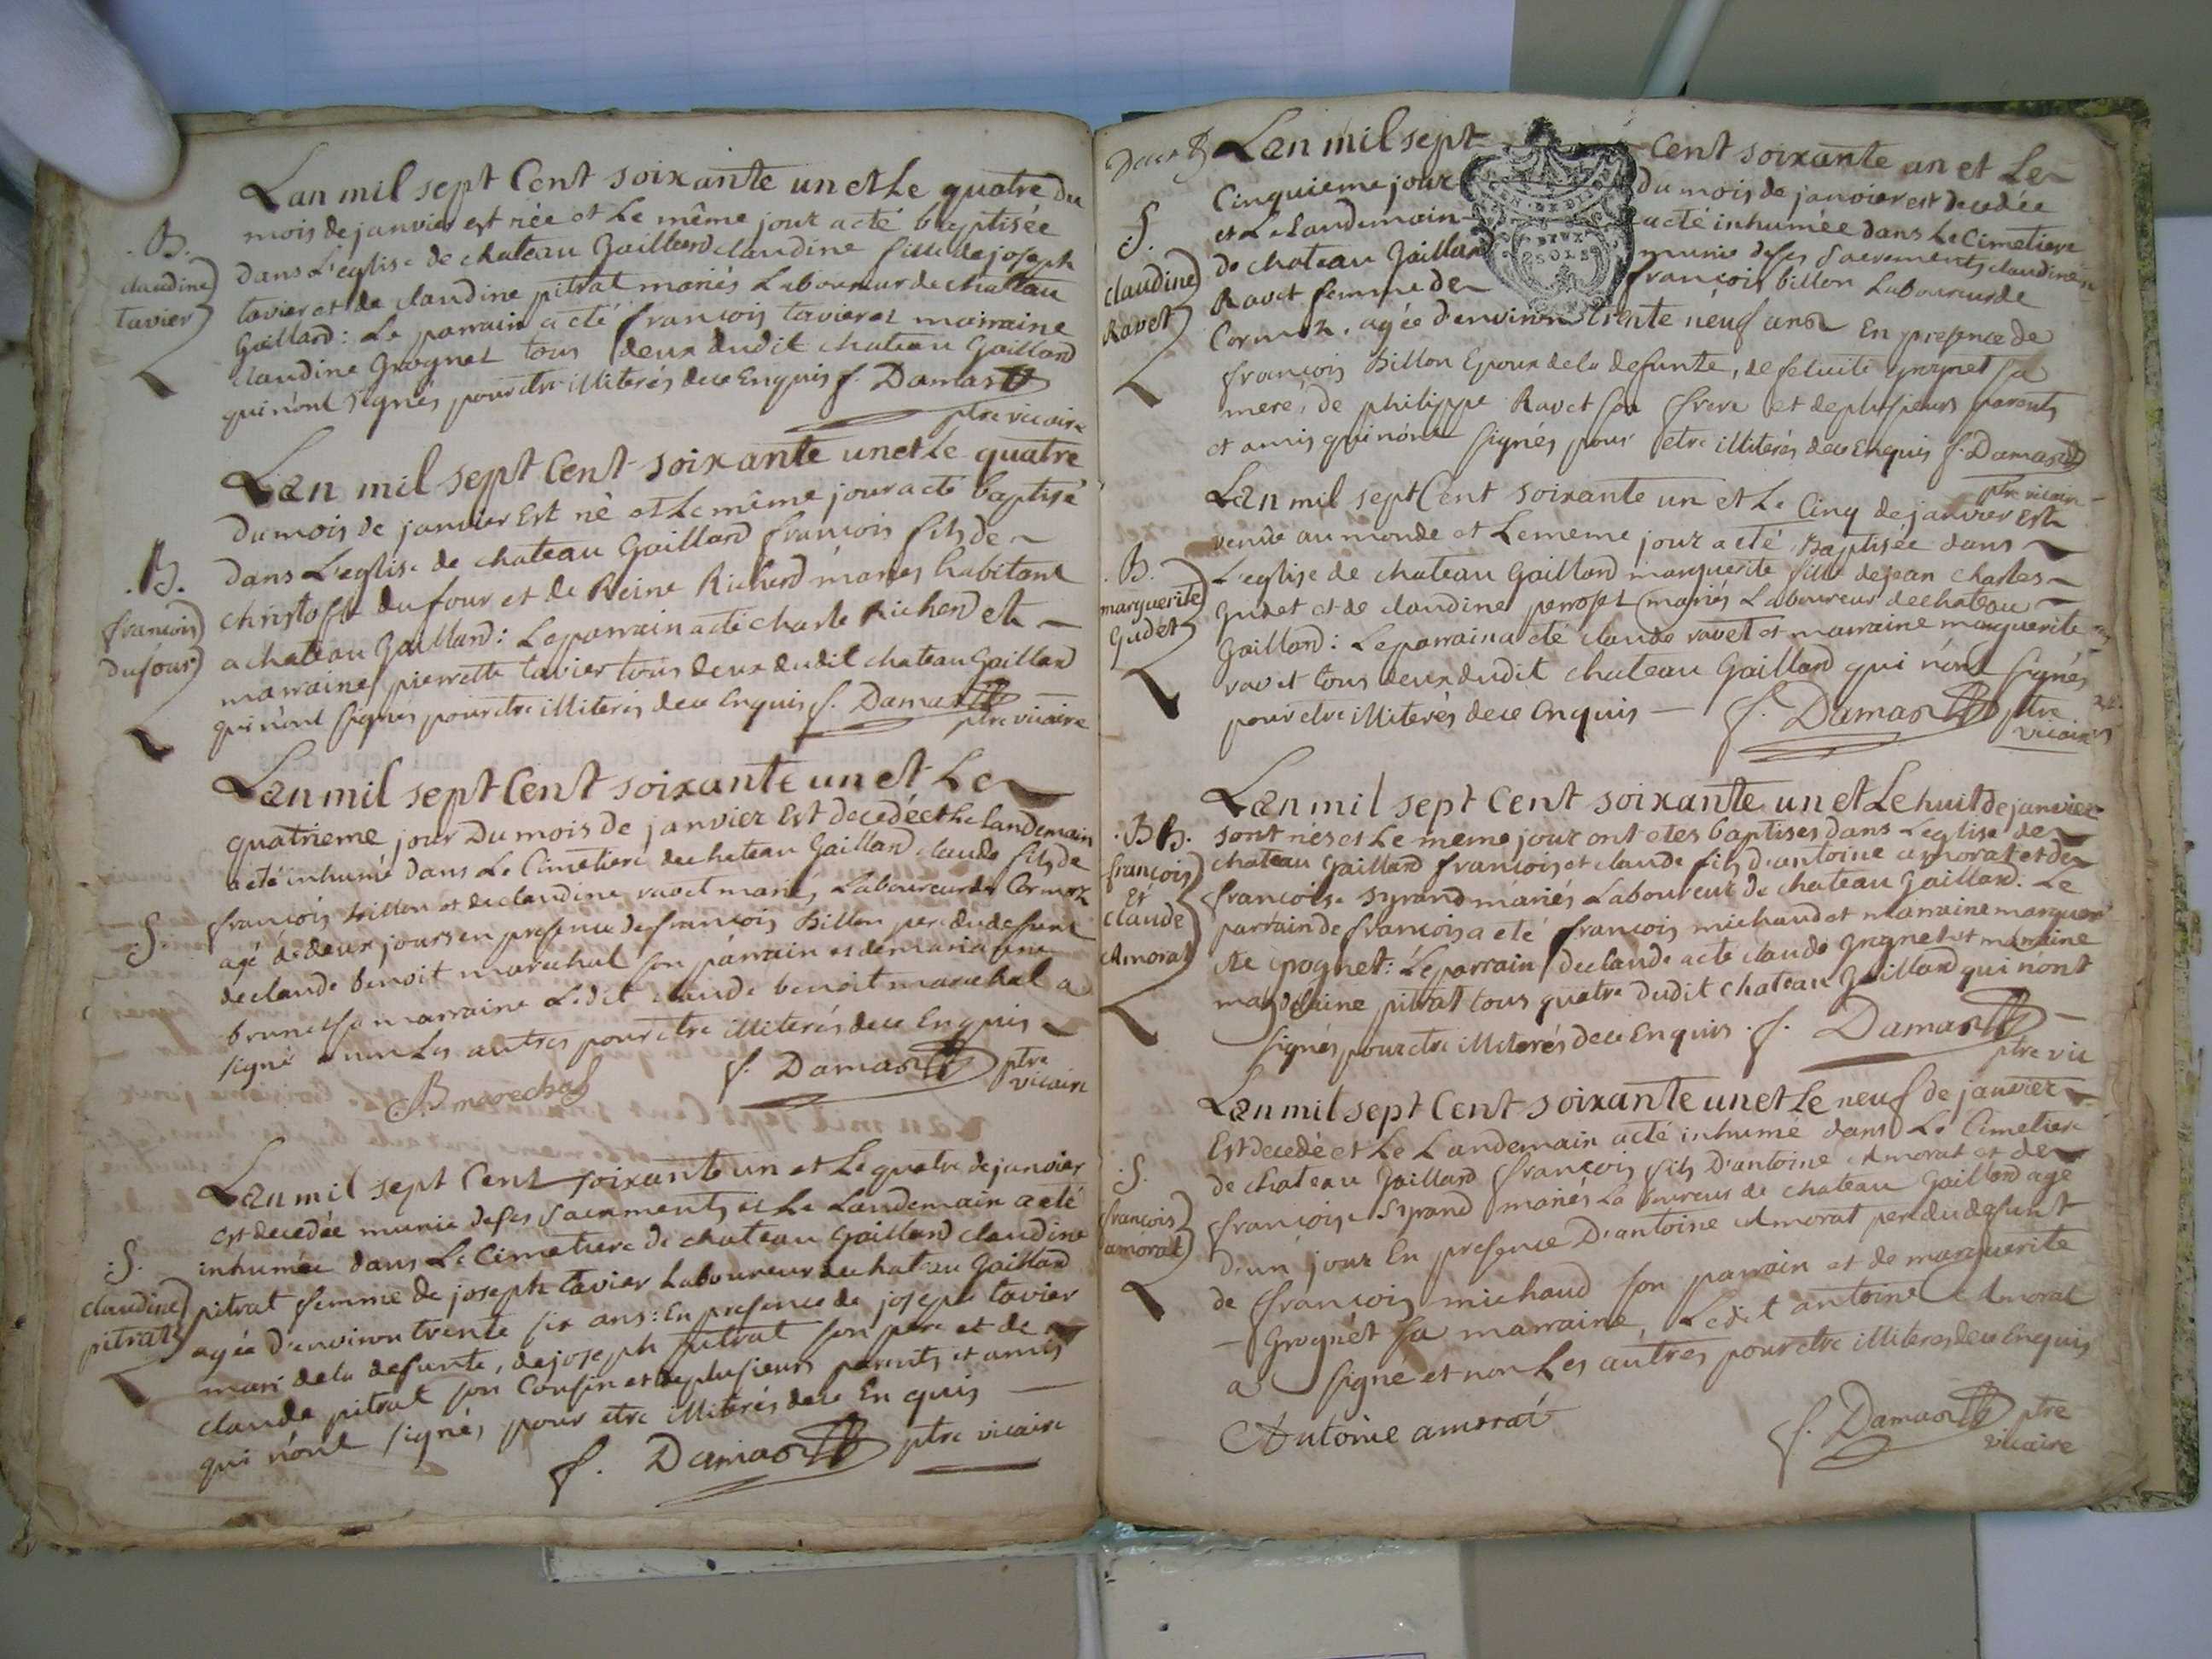 Lan mil sept Cent soixante un et Le quatre du
mois de janvier est née et Le même jour a eté baptisée
.B.
dans L'eglise de chateau Gaillard claudine fille de joseph
claudine
tavier et de claudine pitrat mariés Laboureur de chateau
tavier
Gaillard : Le parrain a eté françois tavier et marraine
claudine Grognet tous deux dudit chateau Gaillard
qui n'ont signés pour etre illiterés de ce Enquis f. Damas
ptre vicaire
Lan mil sept Cent soixante un et Le quatre
du mois de janvier Est né et Le même jour a eté baptisé
.B.
dans L'eglise de chateau Gaillard françois fils de
françois
christofle dufour et de Reine Richerd mariés habitant
dufour
a chateau Gaillard : Le parrain a eté charle Richerd et
marraine pierrette tavier tous deux dudit chateau Gaillard
qui n'ont signés pour etre illiterés de ce Enquis f. Damas
ptre vicaire
Lan mil sept Cent soixante un et Le
quatrieme jour Du mois de janvier Est decedé et Le landemain
a eté inhumé dans Le Cimetiere de chateau Gaillard claude fils de
françois billon et de claudine ravet mariés Laboureur de Cormoz
.S.
agé de deux jours en presence de françois Billon pere du defunt
de claude benoit marechal son parrain et de maria
brunet sa marraine Ledit claude benoit marechal a
signé et non Les autres pour etre illiterés de ce Enquis
B marechal f. Damas ptre
vicaire
Lan mil sept Cent soixante un et Le quatre de janvier
est decedée munie de ses sacrements et Le Landemain a eté
.S.
inhumée dans Le Cimetiere de chateau Gaillard claudine
claudine
pitrat femme de joseph tavier Laboureur de chateau Gaillard
pitrat
agée d'environ trente six ans : En presence de joseph tavier
mari de la defunte, de joseph pitrat son pere et de
claude pitrat son Cousin et de plusieurs parents et amis
qui n'ont signés pour etre illiterés de ce En quis
f. Damas ptre vicaire
Lan mil sept Cent soixante un et Le
Cinquieme jour du mois de janvier est decedée
.S.
et Le Landemain a eté inhumée dans Le Cimetiere
claudine
de chateau Gaillard munie de ses sacrements claudine
Ravet
Ravet femme de françois billon Laboureur de
Cormoz. agée d'environ trente neuf ans En presence de
françois Billon Epoux de la defunte, de felicité grognet sa
mere, de philippe Ravet son frere et de plusieurs parents
et amis qui n'ont signés pour etre illiterés de ce Enquis f. Damas
ptre vicaire
Lan mil sept Cent soixante un et Le Cinq de janvier est
venue au monde et Le meme jour a eté Baptisée dans
.B.
L'eglise de chateau Gaillard marguerite fille de jean charles
marguerite
Gudet et de claudine perroset mariés Laboureur de chateau
Gudet
Gaillard : Le parrain a eté claude ravet et marraine marguerite
ravet tous deux dudit chateau Gaillard qui n'ont signés
pour etre illiterés de ce Enquis f. Damas ptre
vicaire
Lan mil sept Cent soixante un et Le huit de janvier
.BB.
sont nés et Le meme jour ont etés baptisés dans L'eglise de
françois
chateau Gaillard françois et claude fils d'antoine amorat et de
Et
françoise syrand mariés Laboureur de chateau Gaillard. Le
claude
parrain de françois a eté françois michaud et marraine marguer
Amorat
ite grognet : Le parrain de claude a eté claude grognet et marraine
magdelaine pitrat tous quatre dudit chateau Gaillard qui n'ont
signés pour etre illiterés de ce Enquis. f. Damas
ptre vic
Lan mil sept Cent soixante un et Le neuf de janvier
Est decedé et Le Landemain a eté inhumé dans Le Cimetiere
.S.
de chateau Gaillard françois fils D'antoine Amorat et de
françois
françoise Syrand mariés Laboureur de chateau Gaillard agé
amorat
d'un jour En presence D'antoine Amorat pere du defunt
de françois michaud son parrain et de marguerite
Grognet sa marraine, Ledit antoine Amorat
a signé et non Les autres pour etre illiterés de ce Enquis
Antoine amorat f. Damas ptre
vicaire